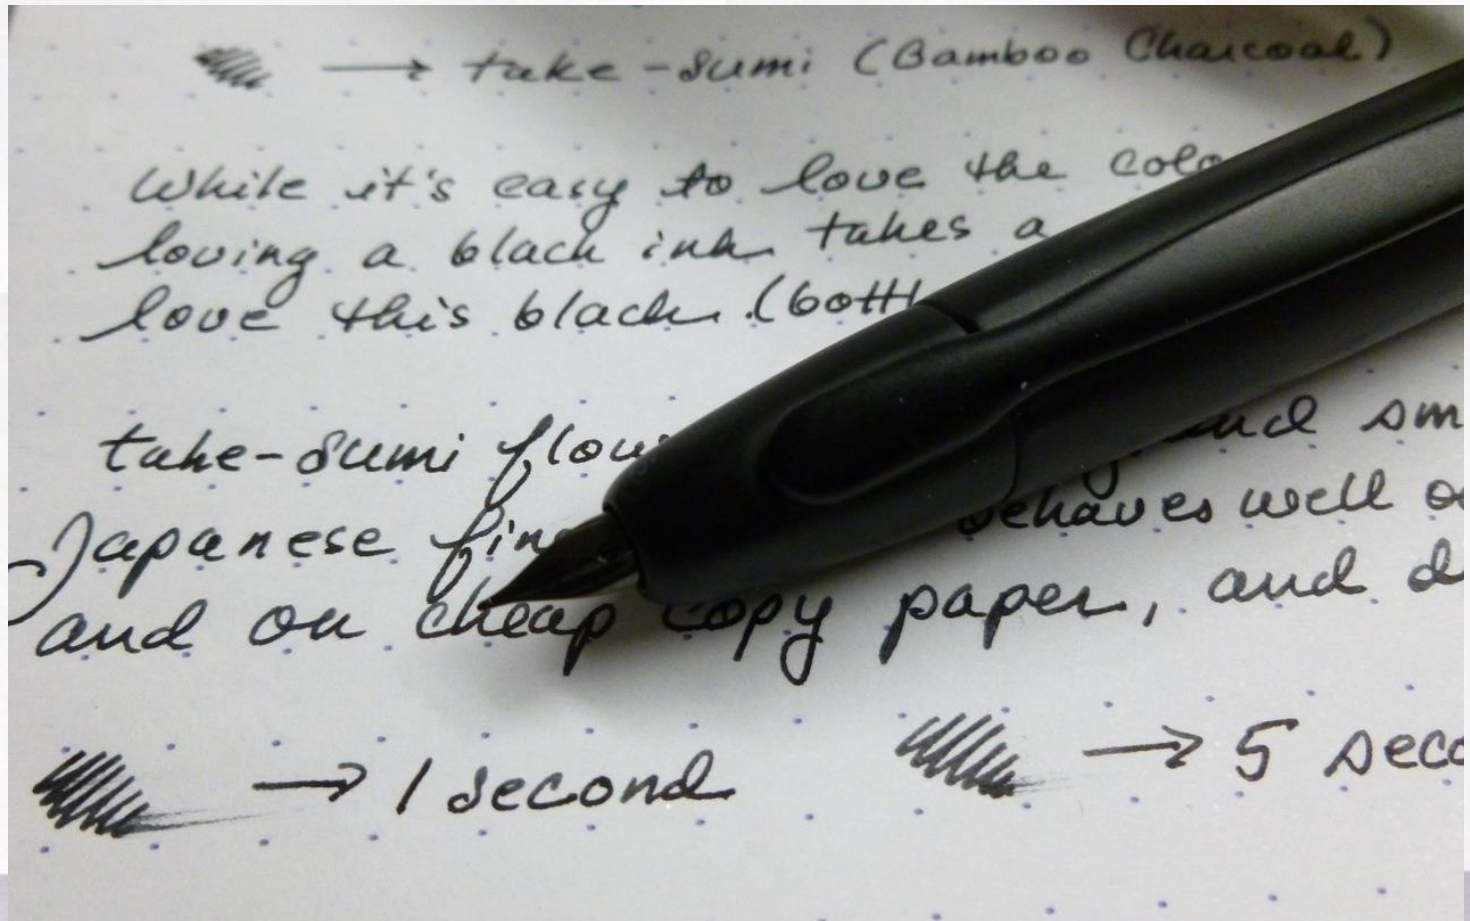 → take-sumi (Bamboo Charcoal)
While it's easy to love the colo
loving a black ink takes a
love this black. (bottl
take-sumi flow and sm
Japanese fin behaves well o
and on cheap copy paper, and d
→ 1 second → 5 seco